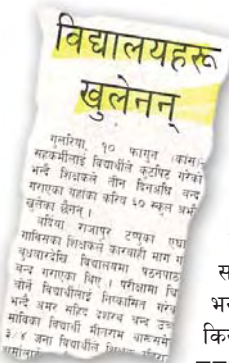 विद्यालयहरू
खुलेनन्
गुलरिया, १० फागुन (कास)–
सहकर्मीलाई विद्यार्थीले कुटपिट गरेको
भन्दै शिक्षकले तीन दिनअघि बन्द
गराएका यहाँका करिब ६० स्कूल अभै
खुलेका छैनन् ।
बर्दिया राजापुर टप्पुका एघा
गाविसका शिक्षकले कारवाही माग ग
बुधवारदेखि विद्यालयमा पठनपाठ
बन्द गराएका थिए । परीक्षामा चि
चोर्ने विद्यार्थीलाई निष्कासित गरेक
भन्दै अमर सहिद दशरथ चन्द उच्च
माविका विद्यार्थी मीनराम थारूसमे
३/४ जना विद्यार्थीले
स
भन
कि